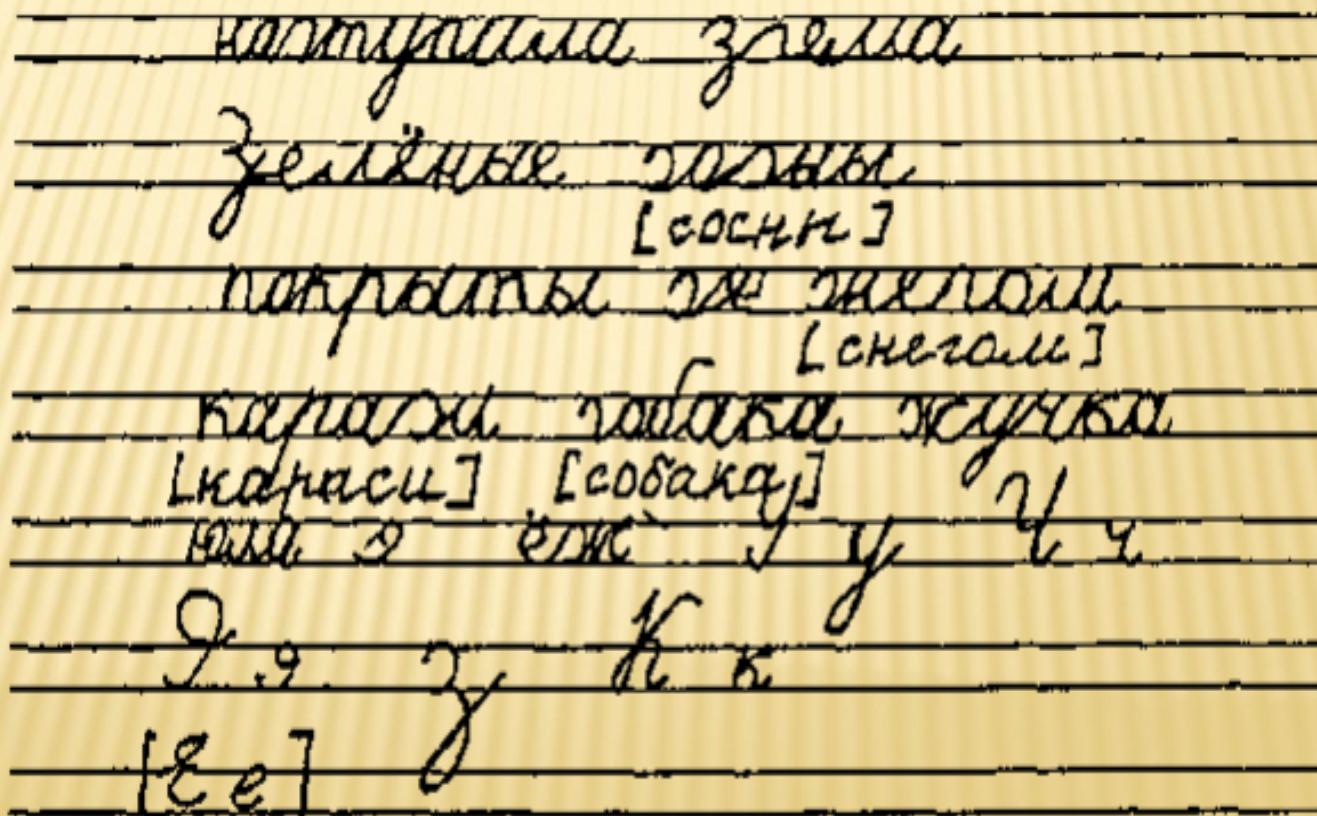 наступила зиема
Зелёные сосны
[соснн]
покрыты снегом
[снегом]
караси собака жучка
[караси] [собака]
юла я ёж У у Ч ч
Я я З К к
[Ее]